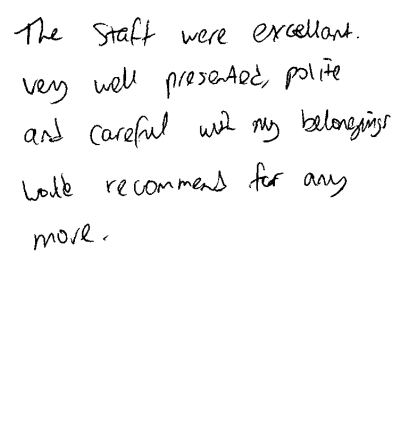 The staff were excellant.
very well presented, polite
and careful with my belongings
would recommend for any
move.